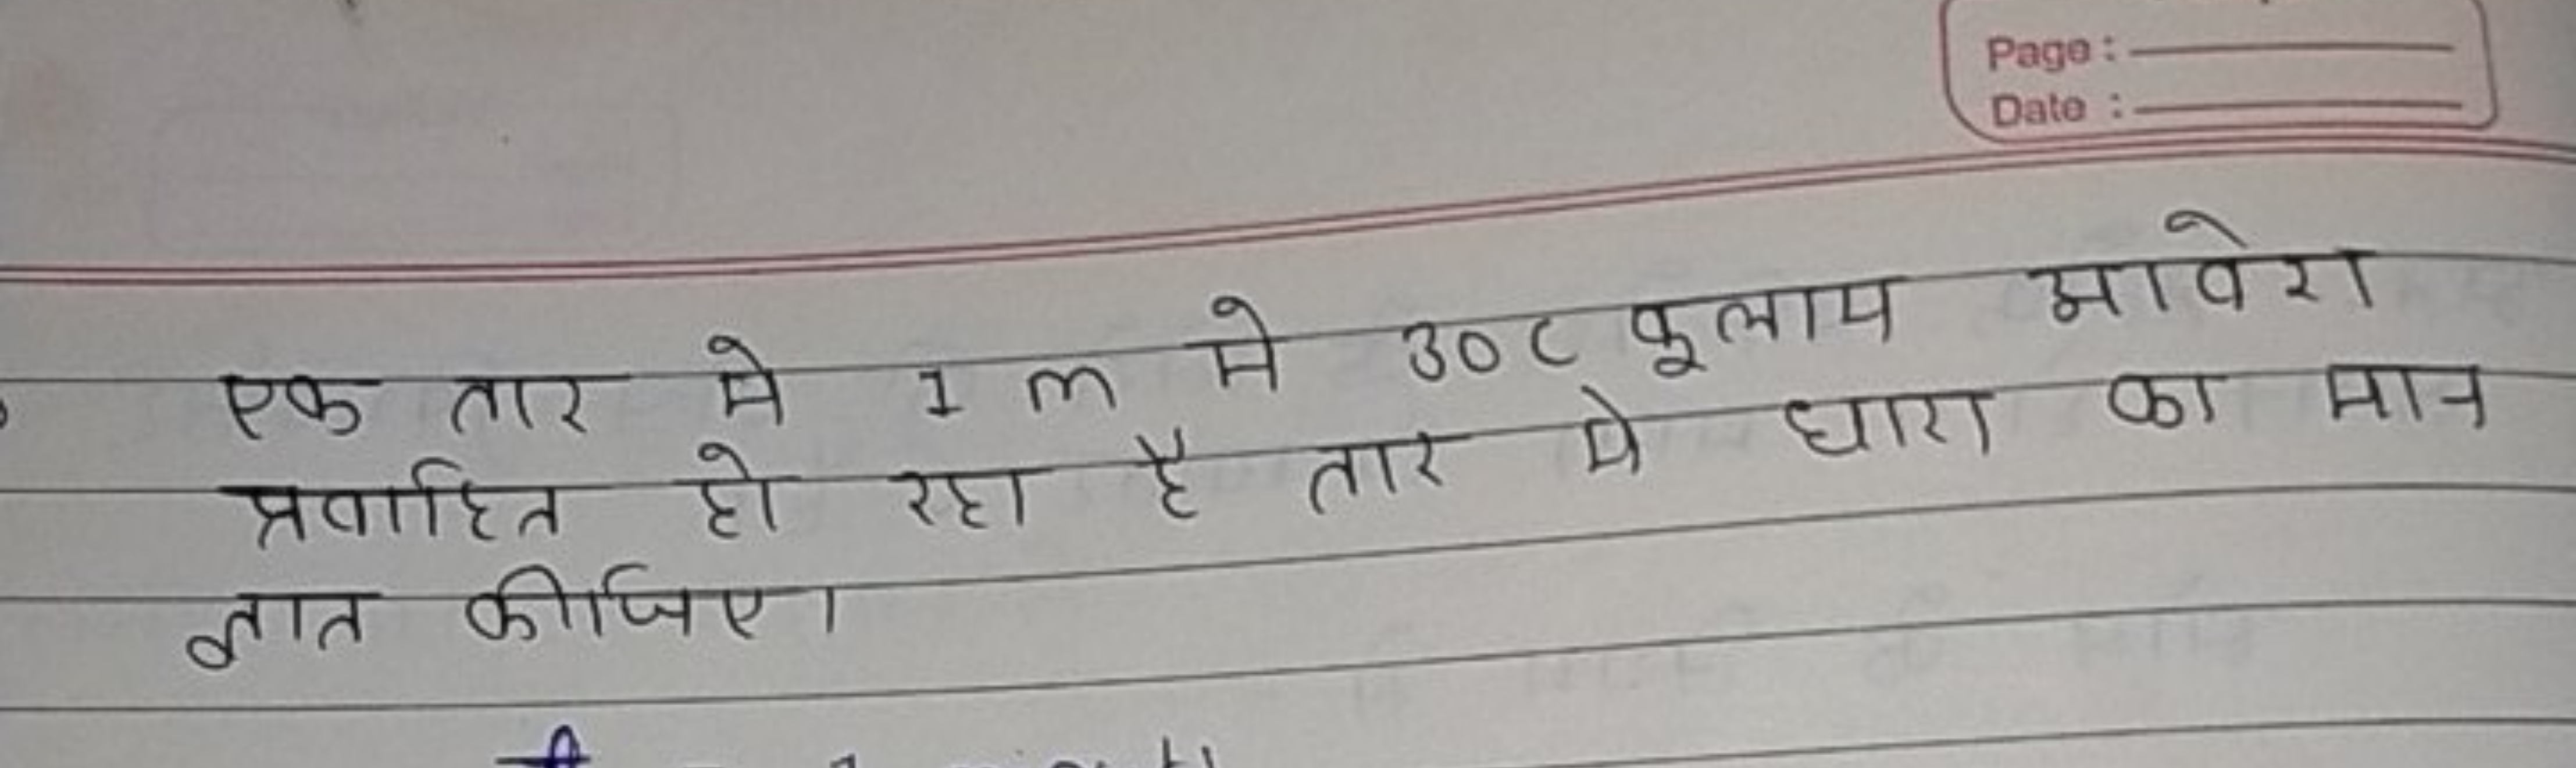 Page :
Date :
एक तार मे 1 m मे 30 C कूलाम आवेश
प्रवाहित हो रहा है तार मे धारा का मान
ज्ञात कीजिए।